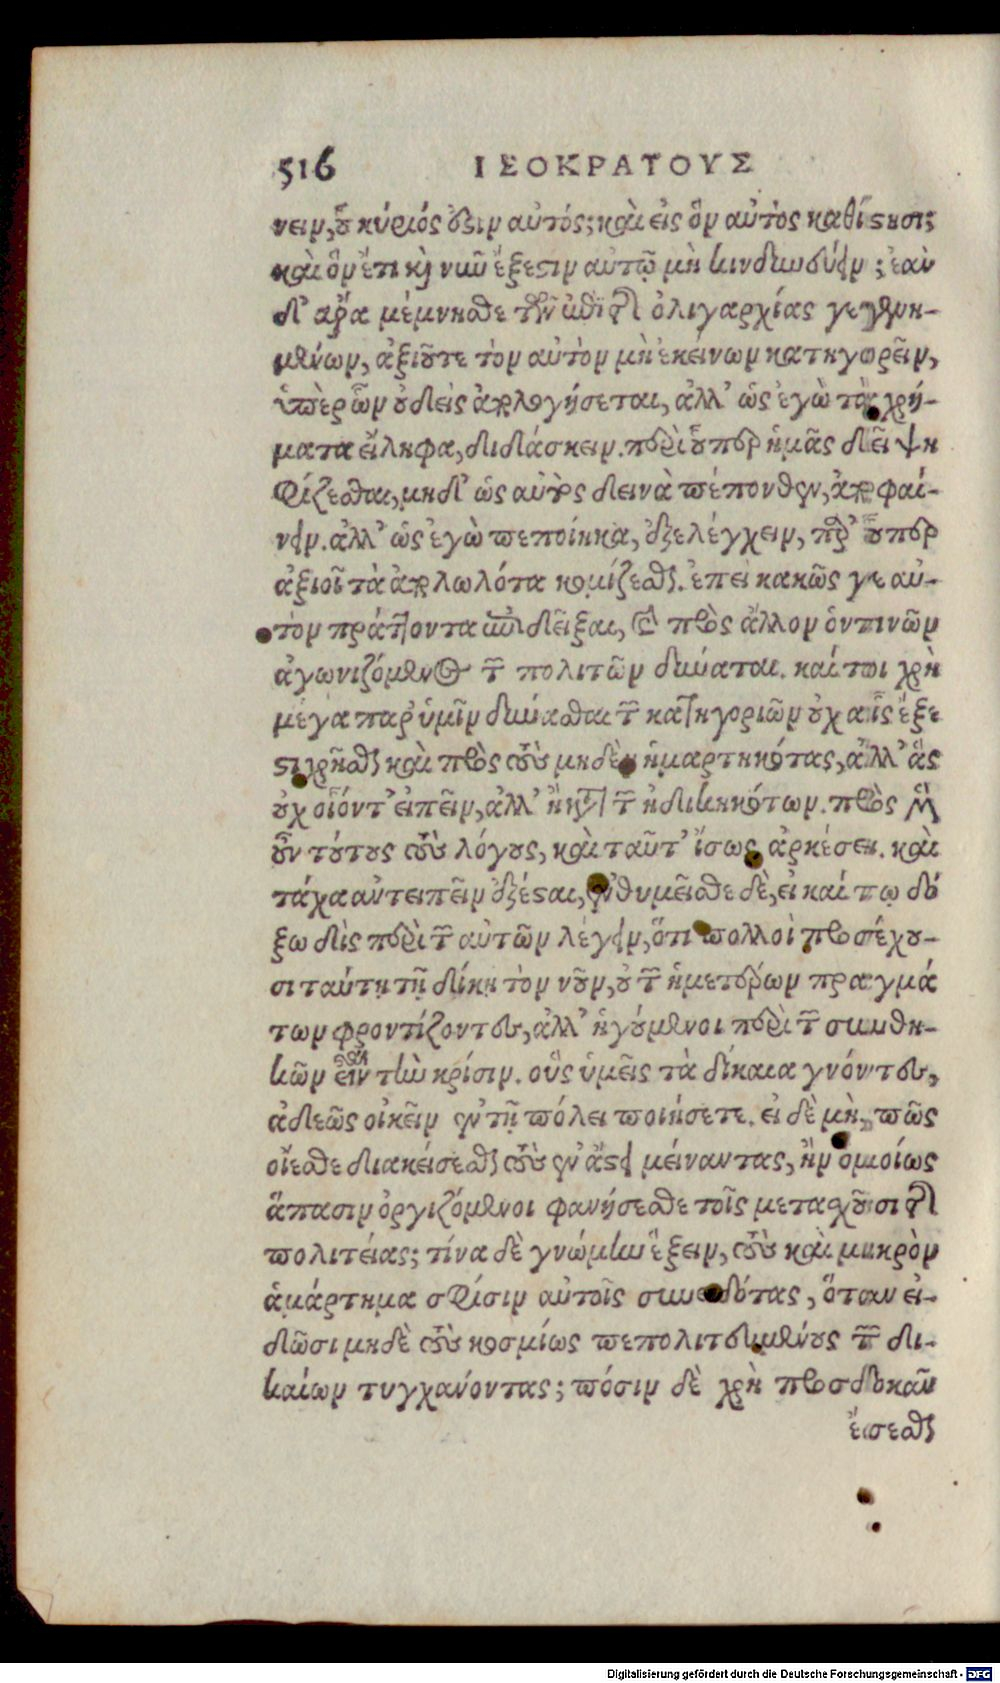 516 ΙΣΟΚΡΑΤΟΥΣ
νειν, οὗ κύριός ἐστιν αὐτός; καὶ εἰς ὃν αὐτὸς καθίστησι;
καὶ ὃν ἔτι καὶ νῦν ἔξεστιν αὐτῷ μὴ κινδυνεύειν; ἐὰν
δ' ἄρα μέμνησθε τῶν ἐπὶ τῆς ὀλιγαρχίας γεγενη-
μένων, ἀξιοῦτε τὸν αὐτὸν μὴ ἐκείνων κατηγορεῖν,
ὑπὲρ ὧν οὐδεὶς ἀπολογήσεται, ἀλλ' ὡς ἐγὼ τὰ χρή-
ματα εἴληφα, διδάσκειν. περὶ οὗπερ ἡμᾶς δεῖ ψη
φίζεσθαι, μηδ' ὡς αὐτὸς δεινὰ πέπονθεν, ἀποφαί-
νειν. ἀλλ' ὡς ἐγὼ πεποίηκα, ἐξελέγχειν, παρ' οὗπερ
ἀξιοῖ τὰ ἀπολωλότα κομίζεσθαι. ἐπεὶ κακῶς γε αὑ-
τὸν πράττοντα ἐπιδεῖξαι, καὶ πρὸς ἄλλον ὁντινῶν
ἀγωνιζόμενος τῶν πολιτῶν δύναται. καίτοι χρὴ
μέγα παρ' ὑμῖν δύνασθαι τῶν κατηγοριῶν οὐχ αἷς ἔξε
στι χρῆσθαι καὶ πρὸς τοὺς μηδὲν ἡμαρτηκότας, ἀλλ' ἃς
οὐχ οἷόντ' εἰπεῖν, ἀλλ' ἢ κατὰ τῶν ἠδικηκότων. πρὸς μὲν
οὖν τούτους τοὺς λόγους, καὶ ταῦτ' ἴσως ἀρκέσει. καὶ
τάχα αὐτειπεῖν ἐξέσται, ἐνθυμεῖσθε δὲ, εἰ καί τῳ δό
ξω δὶς περὶ τῶν αὐτῶν λέγειν, ὅτι πολλοὶ προσέχου-
σι ταύτῃ τῇ δίκῃ τὸν νοῦν, οὐ τῶν ἡμετέρων πραγμά
των φροντίζοντες, ἀλλ' ἡγούμενοι περὶ τῶν συνθη-
κῶν εἶναι τὴν κρίσιν. οὓς ὑμεῖς τὰ δίκαια γνόντες,
ἀδεῶς οἰκεῖν ἐν τῇ πόλει ποιήσετε. εἰ δὲ μὴ, πῶς
οἴεσθε διακείσεσθαι τοὺς ἐν ἄστει μείναντας, ἢν ὁμοίως
ἅπασιν ὀργιζόμενοι φανήσεσθε τοῖς μετασχοῦσι τῆς
πολιτείας; τίνα δὲ γνώμην ἕξειν, τοὺς καὶ μικρὸν
ἁμάρτημα σφίσιν αὐτοῖς συνειδότας, ὅταν εἰ-
δῶσι μηδὲ τοὺς κοσμίως πεπολιτευμένους τῶν δι-
καίων τυγχάνοντας; πόσην δὲ χρὴ προσδοκᾶν
ἔσεσθαι
Digitalisierung gefördert durch die Deutsche Forschungsgemeinschaft - DFG